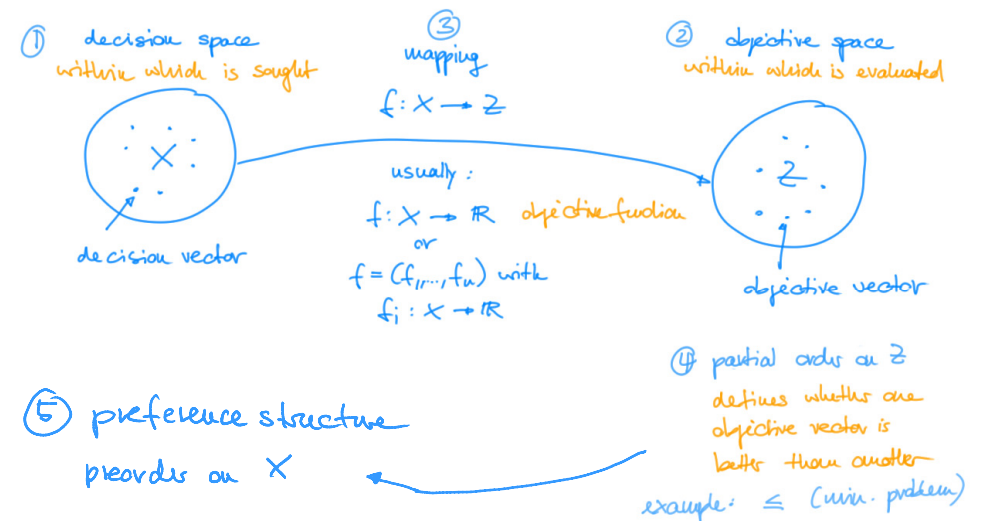 ① decision space
within which is sought
X
decision vector
③
mapping
f: X → Z
usually:
f: X → ℝ objective function
or
f = (f₁,...,fₙ) with
fᵢ: X → ℝ
② objective space
within which is evaluated
Z
objective vector
④ partial order on Z
defines whether one
objective vector is
better than another
example: ≤ (min. problem)
⑤ preference structure
preorder on X